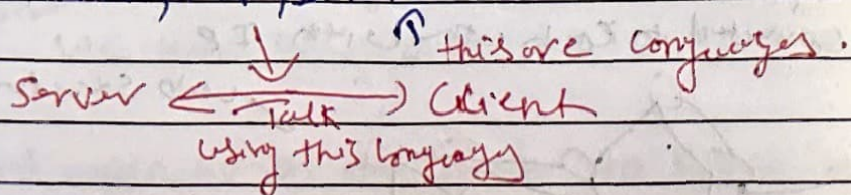 this are languages.
Server <-> Client
Talk
using this language